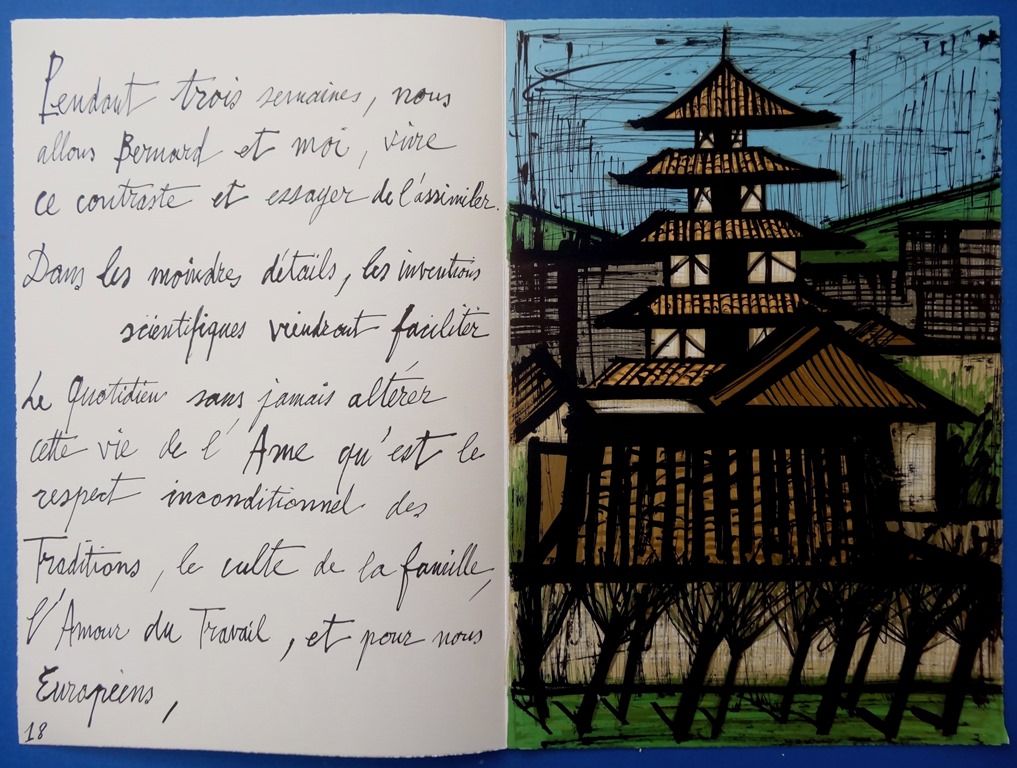 Pendant trois semaines, nous
allons Bernard et moi, vivre
ce contraste et essayer de l'assimiler.
Dans les moindres détails, les inventions
scientifiques viendront faciliter
Le Quotidien sans jamais altérer
cette vie de l'Ame qu'est le
respect inconditionnel des
Traditions, le culte de la famille,
l'Amour du Travail, et pour nous
Européens,
18